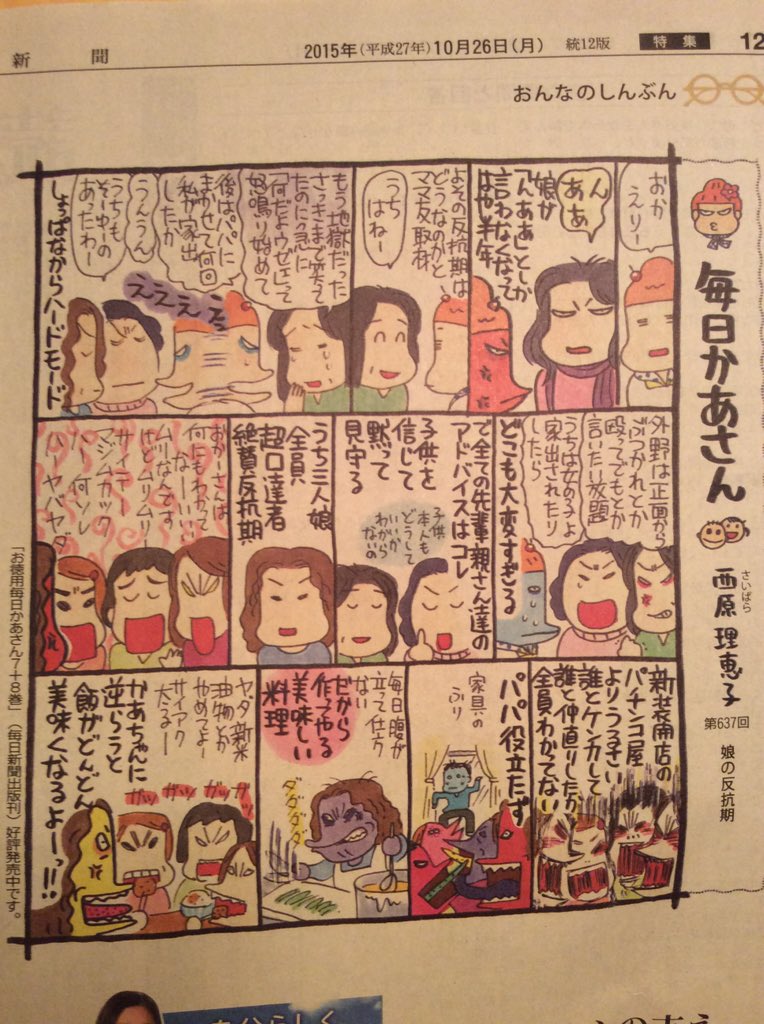 新聞
2015年(平成27年)10月26日(月)
統12版
特集
12
おんなのしんぶん
毎日かあさん
西原理恵子
さいばら
第637回
娘の反抗期
おか
えりー
んああ
娘が
「んああ」としか
言わなくなって
はや半年
よその反抗期は
どうなのかと
ママ友取材
うち
はねー
もう地獄だった
さっきまで笑って
たのに急に
「何だよウゼェ」って
怒鳴り始めて
後はパパに
まかせて何回
私が家出
したか
うんうん
うちも
そーゆーの
あったわー
ええええぇ
しょっぱながらハードモード
外野は正面から
ぶつかれとか
殴ってでもとか
言いたい放題
うちは女の子よ
家出されたり
したら
どこも大変すぎる
で全ての先輩親さん達の
アドバイスはコレ
子供を
信じて
黙って
見守る
子供
本人も
どうして
いいか
わからないの
うち三人娘
全員
超口達者
絶賛反抗期
おかーさんは
何にもわかって
なーいー
ムリなんです
けどムリムリ
サイテー
マジムカック
ハー何ソレ
ハーヤバヤダ
新装開店の
パチンコ屋
よりうるさい
誰とケンカして
誰と仲直りしたか
全員わかってない
パパ役立たず
家具の
ふり
毎日腹が
立って仕方
ない
だから
作ってやる
美味しい
料理
ダダダダダ
ヤダ新米
油物とか
やめてよー
サイアク
太るー
ガッ ガッ ガッ ガッ
かあちゃんに
逆らうと
飯がどんどん
美味くなるよーっ!!
「お徳用毎日かあさん7+8巻」(毎日新聞出版刊)好評発売中です。